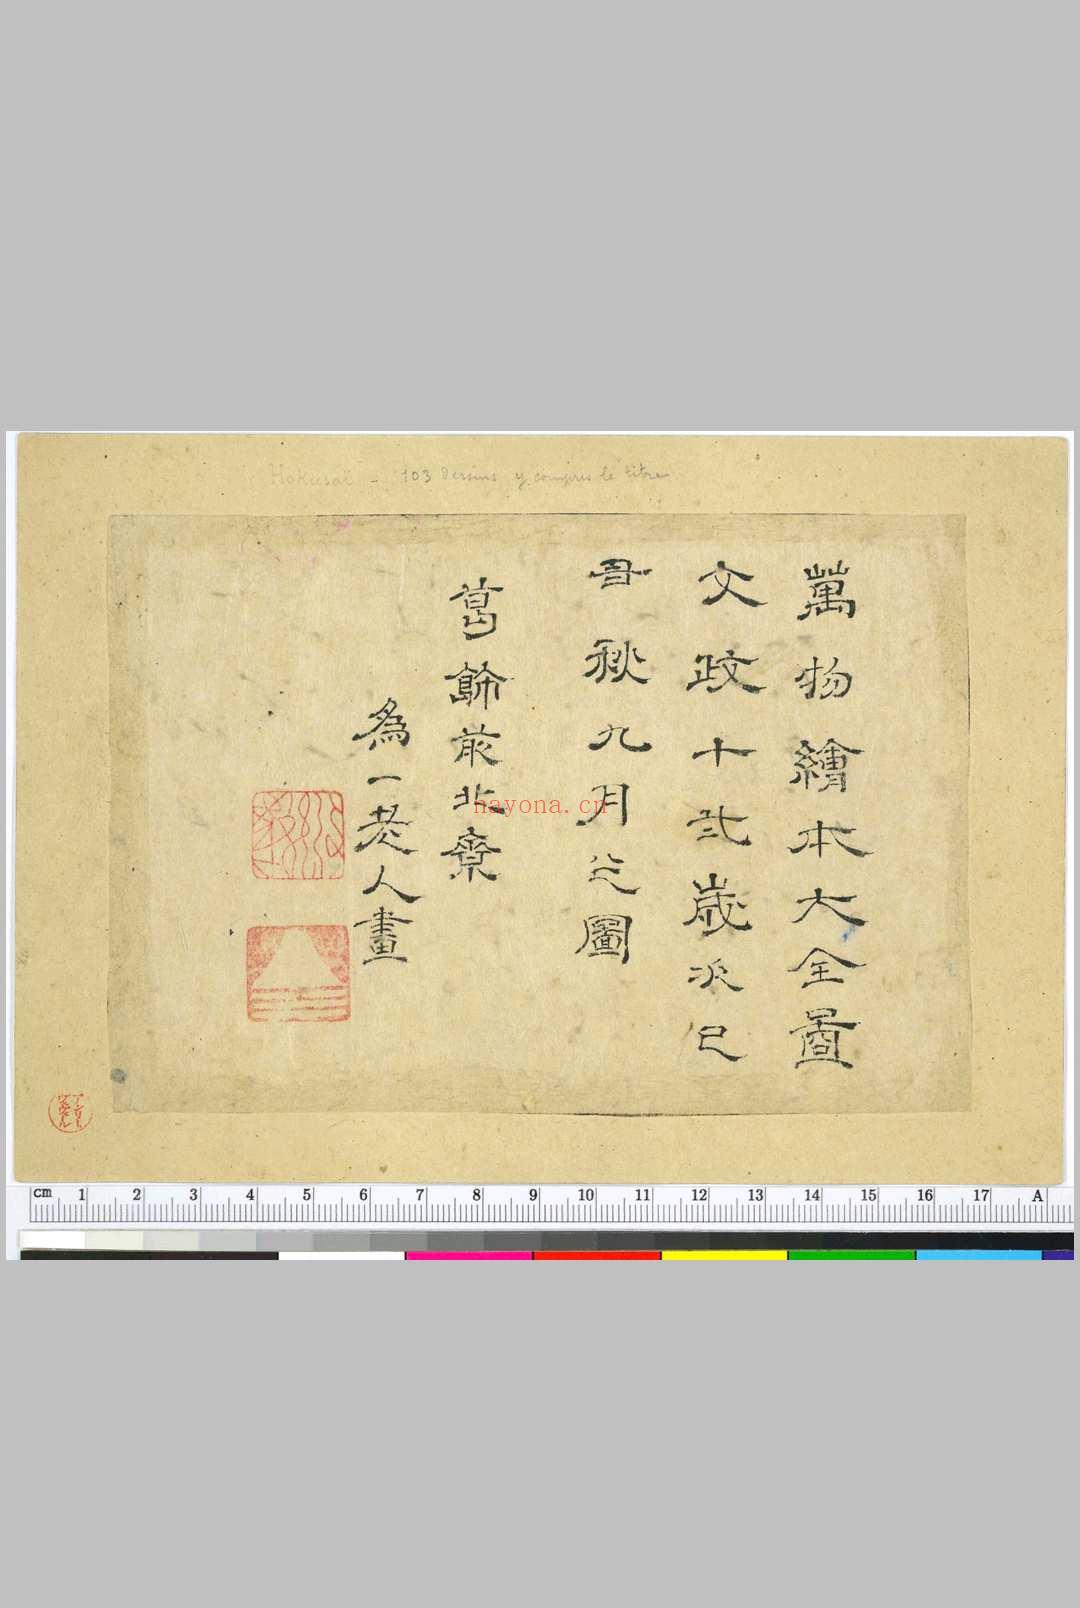 Hokusaï - 103 Dessins y compris le titre
萬物繪本大全圖
文政十弐歳次己
丑秋九月之圖
葛飾前北齋
為一老人畫
nayona.cn
cm 1 2 3 4 5 6 7 8 9 10 11 12 13 14 15 16 17 A